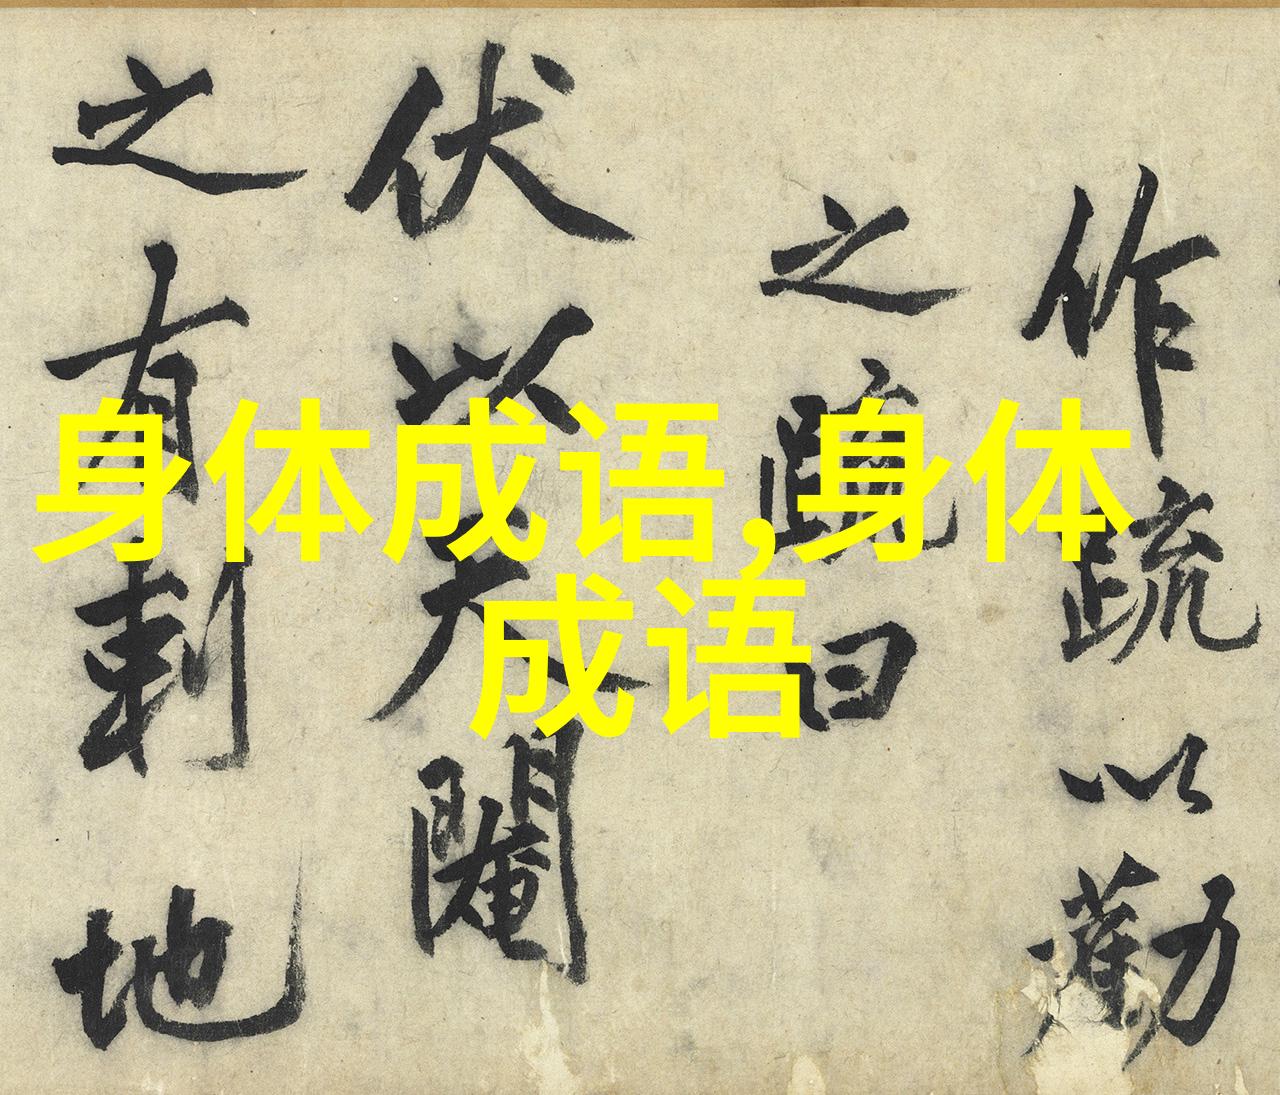 作疏以勸
之疏曰
伏以天閹
之有刺地
身体成语,身体
成语